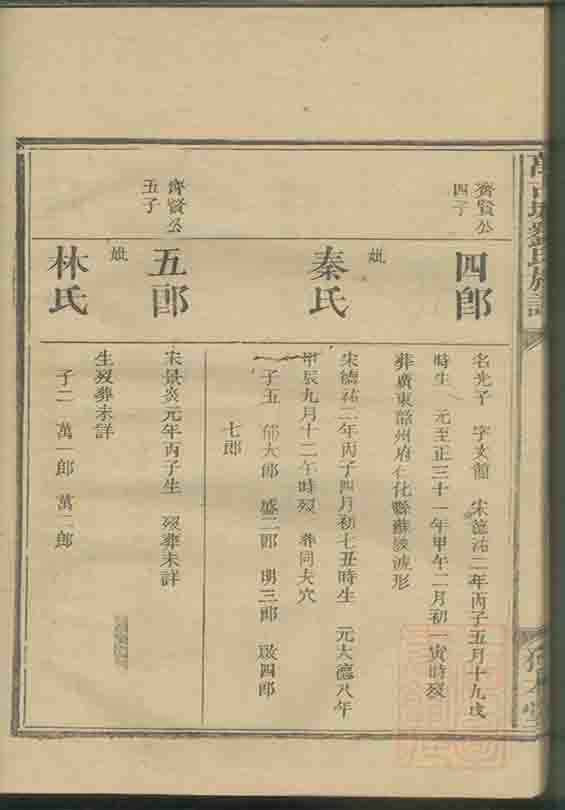 齊賢公
四子
四郎
名光予 字文館 宋德祐二年丙子五月十九戌
時生 元至正三十一年甲午二月初一寅時歿
葬廣東韶州府仁化縣蘇陂波形
妣
秦氏
宋德祐二年丙子四月初七丑時生 元大德八年
甲辰九月十二午時歿 葬同夫穴
子五 大郎 盛二郎 明三郎 啟四郎
七郎
齊賢公
五子
五郎
宋景炎元年丙子生 歿葬未詳
妣
林氏
生歿葬未詳
子二 萬一郎 萬二郎
劉氏族譜